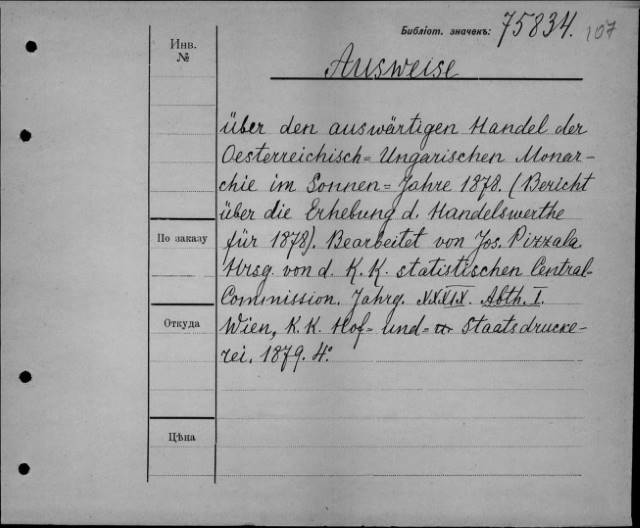 Библіот. значекъ: 75834. 107
Инв.
№
Ausweise
über den auswärtigen Handel der
Oesterreichisch=Ungarischen Monar-
chie im Sonnen=Jahre 1878. (Bericht
über die Erhebung d. Handelswerthe
für 1878). Bearbeitet von Jos. Pizzala.
Hrsg. von d. K. K. statistischen Central-
Commission. Jahrg. XXXIX. Abth. I.
Wien, K. K. Hof= und= Staatsdrucke-
rei. 1879. 4°.
По заказу
Откуда
Цѣна